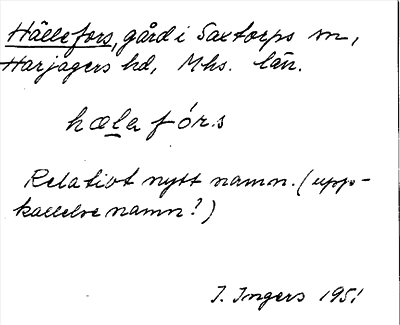 Hällefors, gård i Saxtorps sn,
Harjagers hd, Mhs. län.
hælafór.s
Relativt nytt namn. (upp-
kallelsenamn?)
I. Ingers 1951